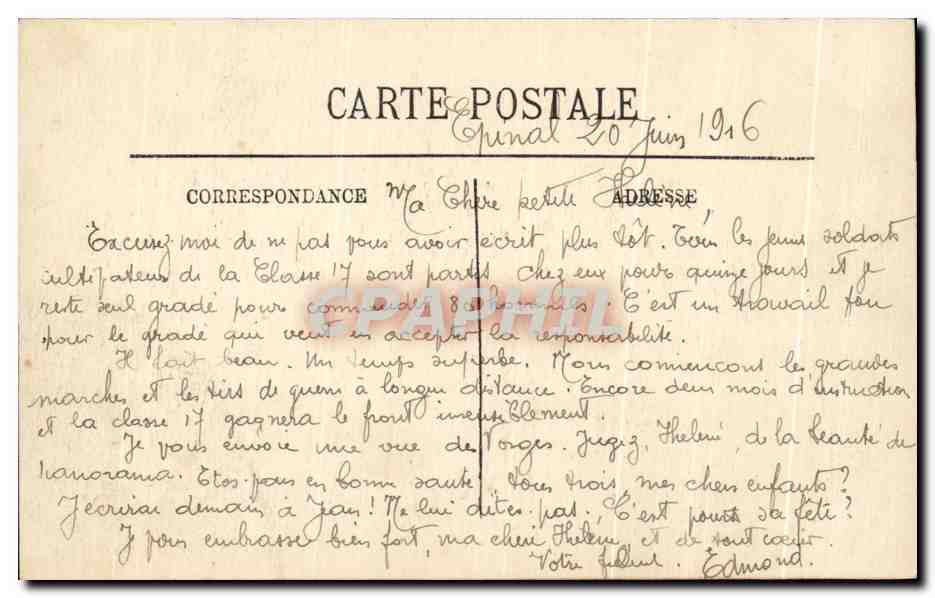 CARTE POSTALE
Epinal 20 Juin 1916
CORRESPONDANCE
ADRESSE
Ma Chère petite Hélène,
Excusez moi de ne pas vous avoir écrit plus tôt. Tous les jeunes soldats
cultivateurs de la Classe 17 sont partis chez eux pour quinze jours et je
reste seul gradé pour commander 80 hommes. C'est un travail fou
pour le gradé qui veut en accepter la responsabilité.
Il fait beau. Un temps superbe. Nous commençons les grandes
marches et les tirs de guerre à longue distance. Encore deux mois d'instruction
et la classe 17 gagnera le front insensiblement.
Je vous envoie une vue des Vosges. Jugez, Hélène, de la beauté du
panorama. Etes-vous en bonne santé tous trois, mes chers enfants?
J'écrirai demain à Jean! Ne lui dites pas. C'est pour sa fête?
Je vous embrasse bien fort, ma chère Hélène, et de tout cœur.
Votre Edmond.
CPAPHIL